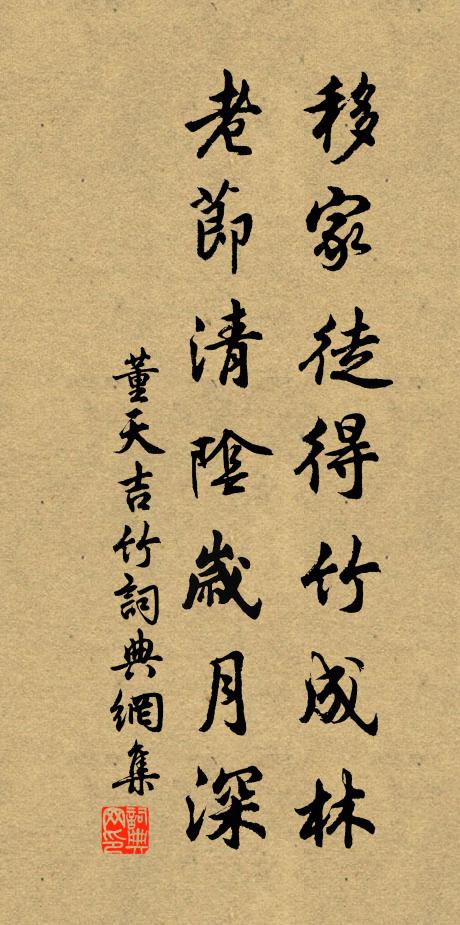 移家徒得竹成林
老節清陰歲月深
董天吉竹詞典網集
詞典網印